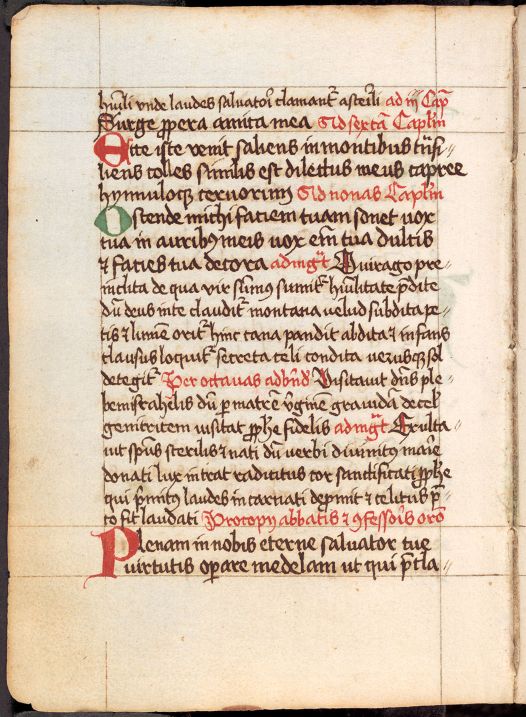 hūili vnde laudes salvatori clamant᷑ a sterili ad iij Cap̄
Surge ꝓpera amica mea Ad sextā Caplm̄
Ecce iste venit saliens in montibus trāsi⸗
liens colles similis est dilectus meus capree
hynnuloqꝫ ceruorum Ad nonas Caplm̄
Ostende michi faciem tuam sonet vox
tua in auribꝰ meis vox em̄ tua dulcis
⁊ facies tua decora ad mgt̄ Quirago pre⸗
inclita de qua vie sumit᷑ hūilitate p̄dite
dū deus inte claudit᷑ montana velud subdita pe⸗
tis ⁊ limē orit᷑ hinc cana pandit abdita ⁊ infans
clausus loquit᷑ secreta celi condita verusqꝫ sol
detegit᷑ Per octauas ad bn̄d Visitauit dn̄s ple⸗
bem israhelis dū ꝑ matrē v̄ginē grauidā de celo
genitricem visitat ꝓph̄e fidelis ad mgt̄ Exulta⸗
uit spūs sterilis ⁊ nati dū verbi diuinitꝰ marie
donati lux intrat radicitus cor sanctificati ꝓph̄e
qui p̄mitꝰ laudes incarnati depmit ⁊ celitus p̄⸗
to fit laudati Procopy abbatis ⁊ ꝯfessoris orō
Plenam in nobis eterne salvator tue
virtutis operare medelam ut qui p̄cla⸗